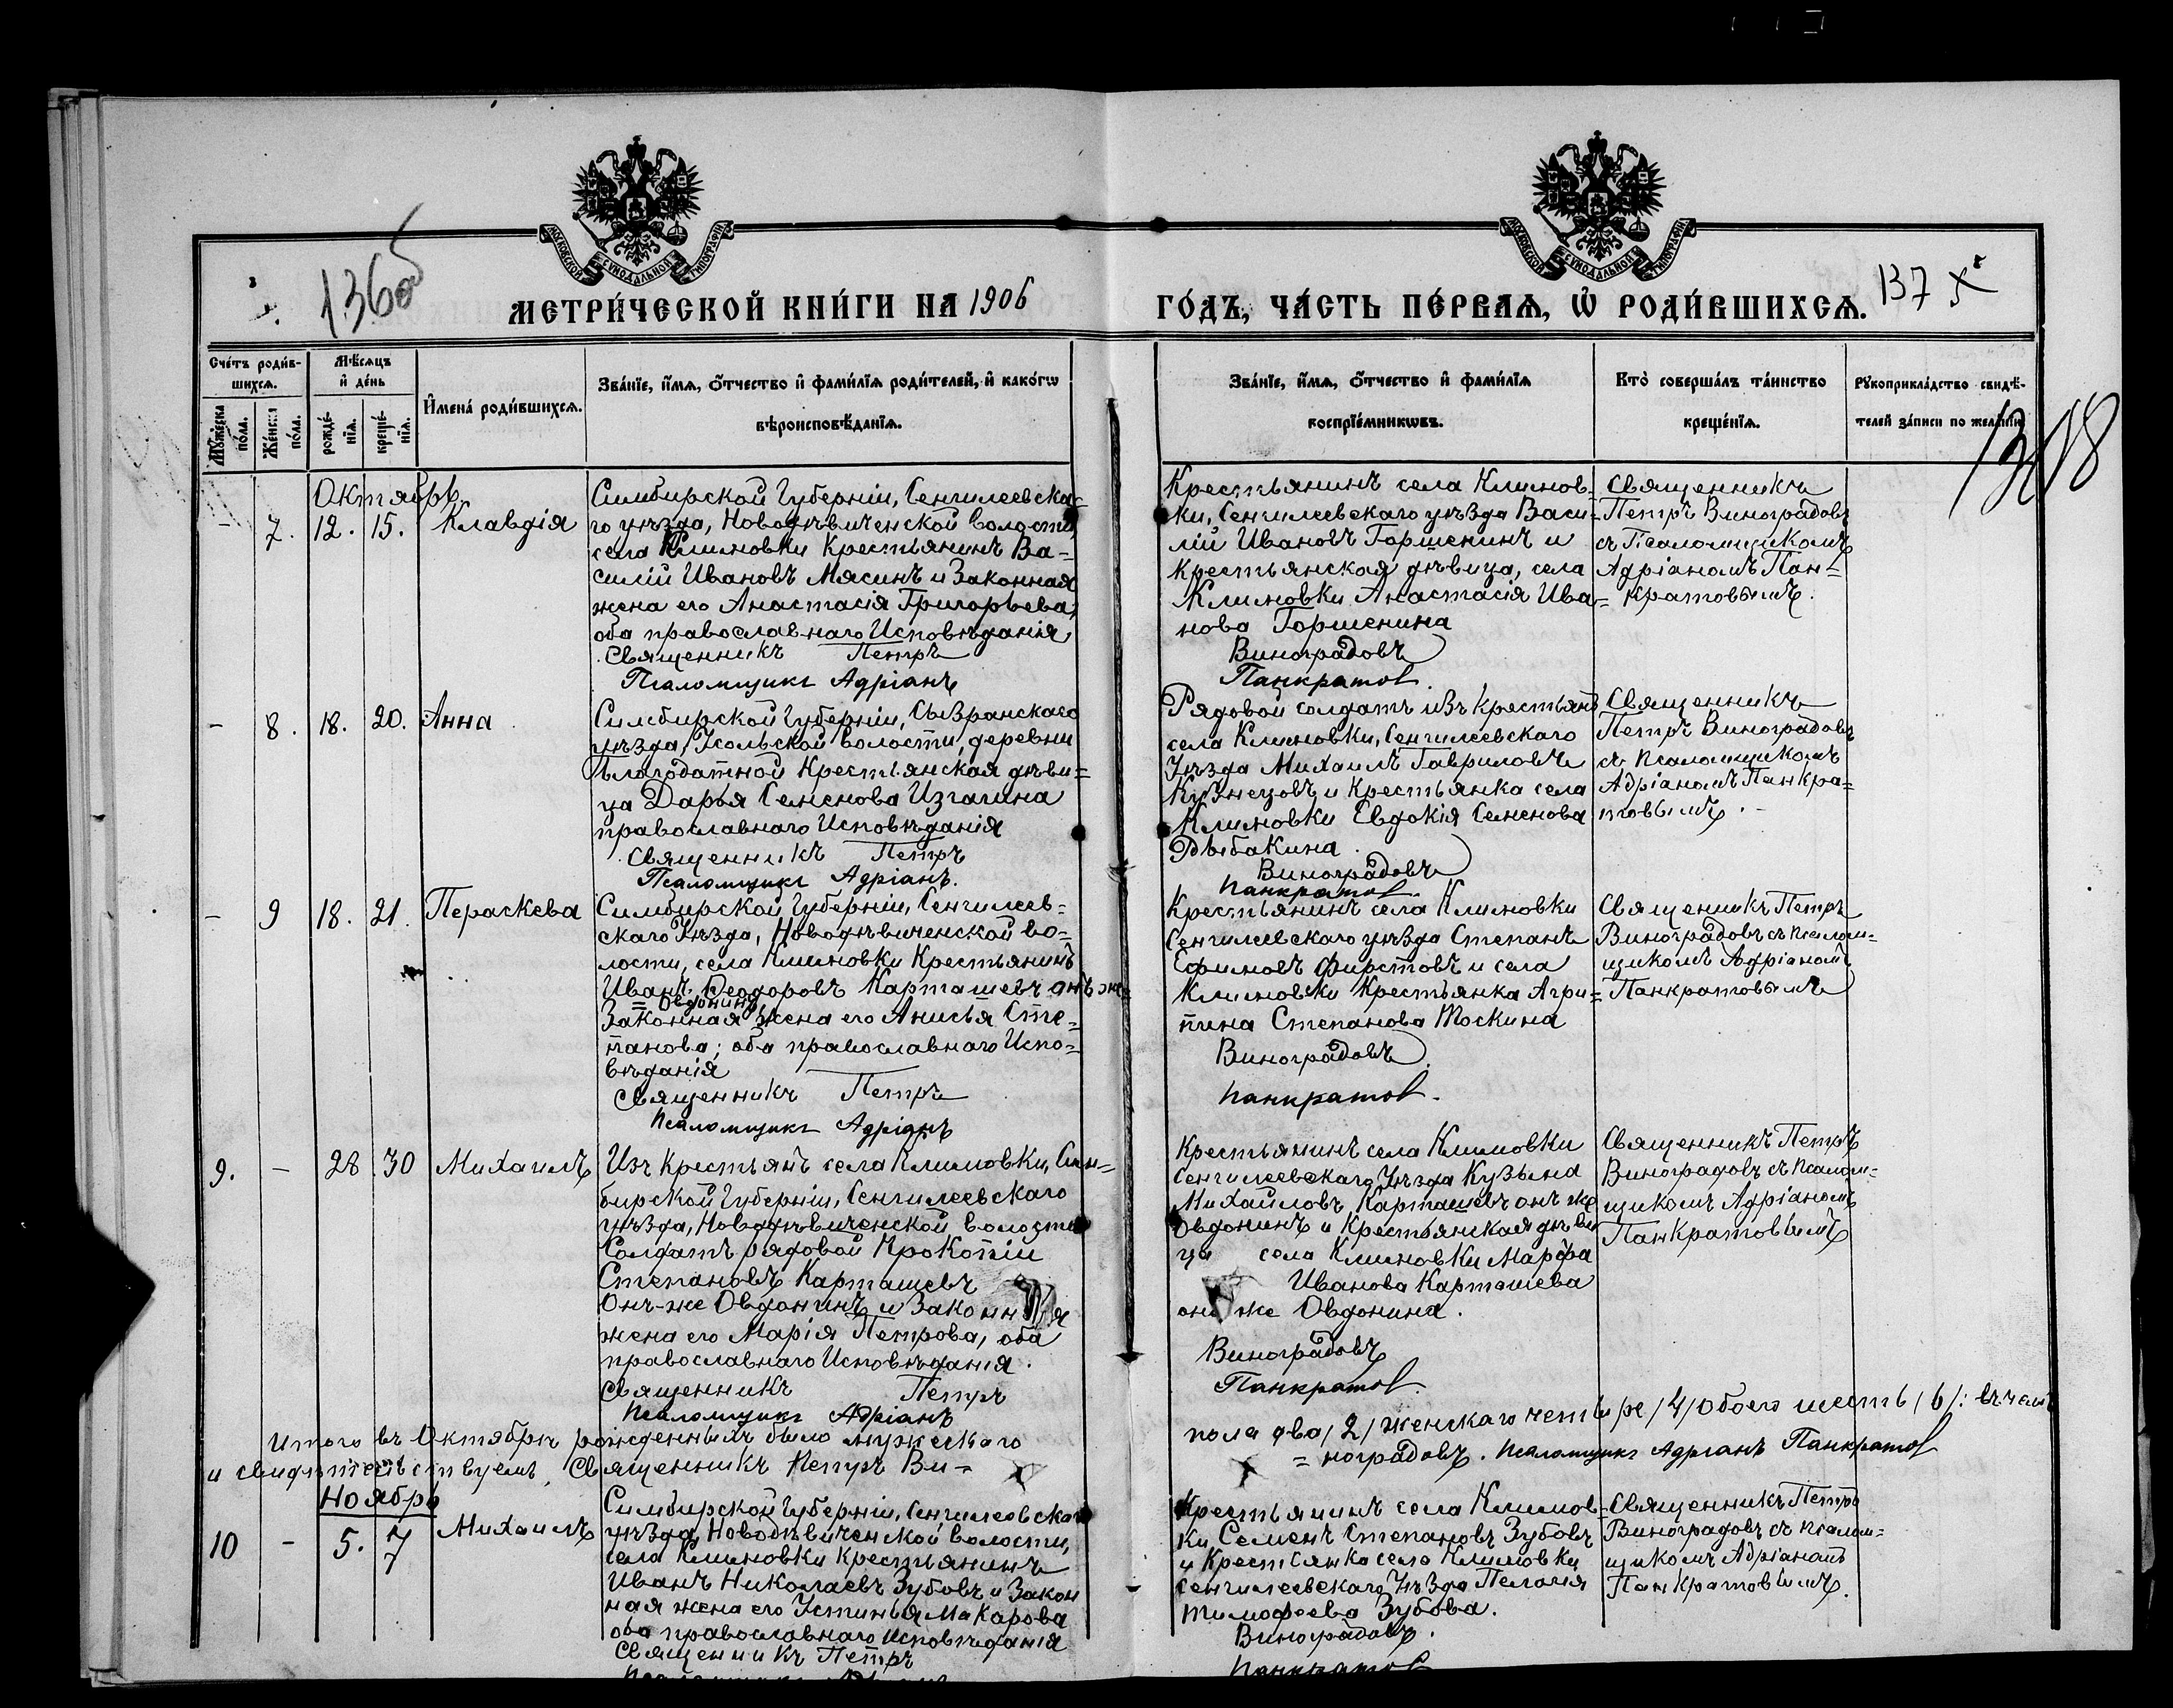 136об
МОСКОВСКОЙ СѴНОДАЛЬНОЙ ТИПОГРАФІИ
МОСКОВСКОЙ СѴНОДАЛЬНОЙ ТИПОГРАФІИ
МЕТРИ́ЧЕСКОЙ КНИ́ГИ НА 1906 ГО́ДЪ, ЧА́СТЬ ПЕ́РВАѦ, Ѽ РОДИ́ВШИХСѦ.
137
Сче́тъ роди́в-
шихсѧ.
Мꙋ́жеска по́ла.
Же́нска по́ла.
Мѣ́сѧцъ
и҆ де́нь
рожде́-
нїѧ.
креще́-
нїѧ.
И҆мена̀ роди́вшихсѧ.
Зва́нїе, и҆́мѧ, ѻ҆́тчество и҆ фами́лїѧ роди́телей, и҆ како́гѡ
вѣроисповѣ́данїѧ.
Зва́нїе, и҆́мѧ, ѻ҆́тчество и҆ фами́лїѧ
воспрїе́мникѡвъ.
Кто̀ соверша́лъ та́инство
креще́нїѧ.
Рꙋкоприкла́дство свидѣ́-
телей за́писи по жела́нїю
Октябрь
- 7. 12. 15. Клавдія
Симбирской Губерніи, Сенгилеевска-
го уѣзда, Новодѣвиченской волости,
села Климовки Крестьянинъ Ва-
силій Ивановъ Мясинъ и Законная
жена его Анастасія Григорьева,
оба православнаго Исповѣданія
Священникъ Петръ
Псаломщикъ Адріанъ
Крестьянинъ села Климов-
ки, Сенгилеевскаго уѣзда Васи-
лій Ивановъ Горшенинъ и
Крестьянская дѣвица, села
Климовки Анастасія Ива-
нова Горшенина
Виноградовъ
Панкратов.
Священникъ
Петръ Виноградовъ
съ Псаломщикомъ
Адріаномъ Пан-
кратовымъ.
- 8. 18. 20. Анна
Симбирской Губерніи, Сызранскаго
уѣзда, Усольской волости, деревни
Благодатной Крестьянская дѣви=
ца Дарья Семенова Изгагина
православнаго Исповѣданія
Священникъ Петръ
Псаломщикъ Адріанъ.
Рядовой солдатъ изъ Крестьянъ
села Климовки, Сенгилеевскаго
Уѣзда Михаилъ Гавриловъ
Кузнецовъ и Крестьянка села
Климовки Евдокія Семенова
Рыбакина.
Виноградовъ
Панкратов.
Священникъ
Петръ Виноградовъ
съ псаломщикомъ
Адріаномъ Панкра=
товымъ.
- 9 18. 21. Пераскева
Симбирской Губерніи, Сенгилеев=
скаго Уѣзда, Новодѣвиченской во=
лости, села Климовки Крестьянинъ
Иванъ Ѳеодоровъ Карташевъ онъ же
= Овдонинъ
Законная жена его Анисья Сте=
панова; оба православнаго Испо=
вѣданія
Священникъ Петръ
Псаломщикъ Адріанъ
Крестьянинъ села Климовки
Сенгилеевскаго уѣзда Степанъ
Ефимовъ Фирстовъ и села
Климовки Крестьянка Агри=
пина Степанова Тоскина
Виноградовъ
Панкратов.
Священникъ Петръ
Виноградовъ съ псалом=
щикомъ Адріаномъ
Панкратовымъ
9. - 28 30 Михаилъ
Изъ Крестьянъ села Климовки, Сим=
бирской Губерніи, Сенгилеевскаго
уѣзда, Новодѣвиченской волости
Солдатъ рядовой Прокопій
Степановъ Карташевъ
Онъ-же Овдонинъ и Законная
жена его Марія Петрова, оба
православнаго Исповѣданія.
Священникъ Петръ
Псаломщикъ Адріанъ
Крестьянинъ села Климовки
Сенгилеевскаго Уѣзда Кузьма
Михайловъ Карташевъ онъ же
Овдонинъ и Крестьянская дѣви
ца села Климовки Марфа
Иванова Карташева
она же Овдонина.
Виноградовъ
Панкратов.
Священникъ Петръ
Виноградовъ съ псалом=
щикомъ Адріаномъ
Панкратовымъ
Итого въ Октябрѣ рожденныхъ было мужескаго пола два /2/ женскаго четыре /4/ обоего шесть /6/: въ чемъ
и свидѣтельствуемъ, Священникъ Петръ Ви= =ноградовъ. Псаломщикъ Адріанъ Панкратов
Ноябрь
10 - 5. 7 Михаилъ
7
Симбирской Губерніи, Сенгилеевскаго
уѣзда, Новодѣвиченской волости,
села Климовки крестьянинъ
Иванъ Николаевъ Зубовъ и Закон
ная жена его Устинья Макарова
оба православнаго исповѣданія
Священникъ Петръ
Крестьянинъ села Климов-
ки Семенъ Степановъ Зубовъ
и Крестьянка села Климовки
Сенгилеевскаго Уѣзда Пелагія
Тимофеева Зубова.
Виноградовъ.
Панкратов
Священникъ Петръ
Виноградовъ съ псалом=
щикомъ Адріаномъ
Панкратовымъ.